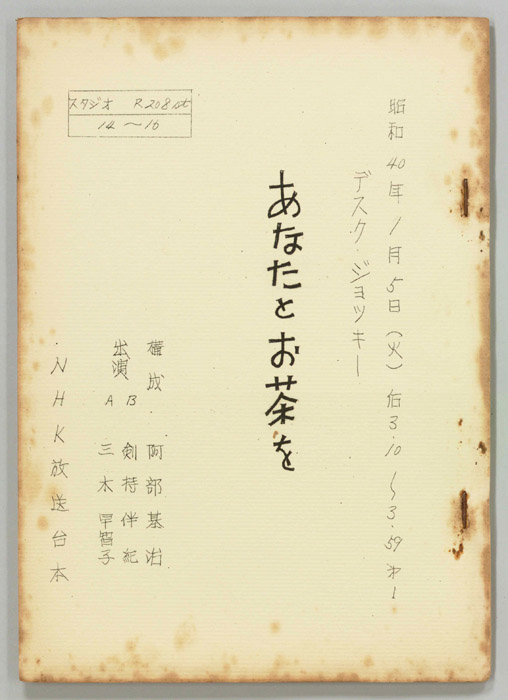 昭和40年1月5日（火）后3.10〜3.59 オ1
デスク・ジョッキー
スタジオ R208st
14〜16
あなたとお茶を
構成・阿部基治
出演 B 剣持伴紀
A 三木早智子
・NHK放送台本